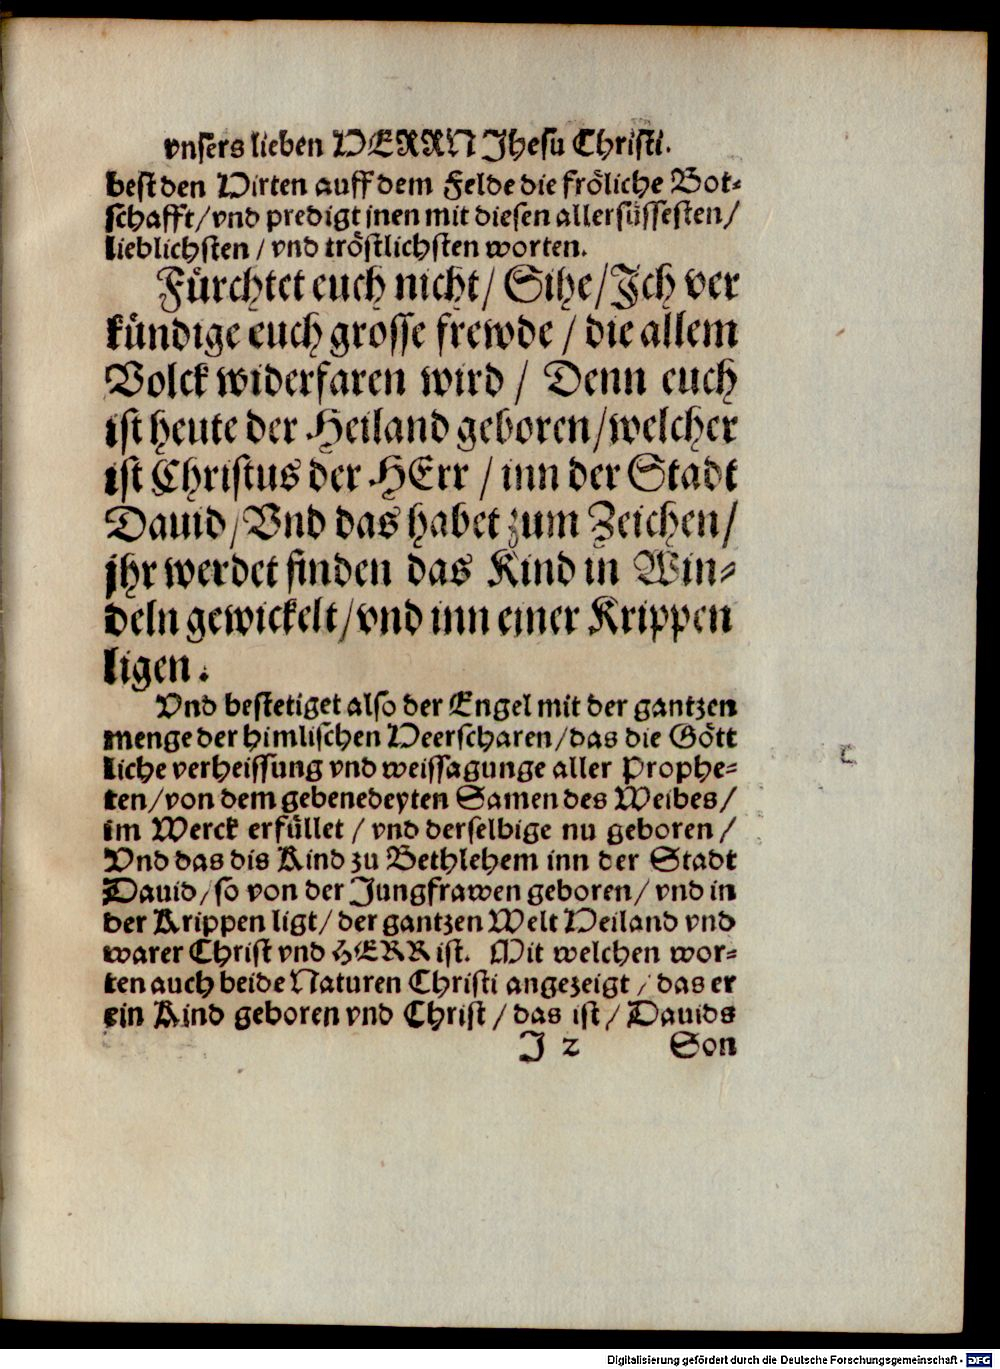 vnsers lieben HERRN Jhesu Christi.
best den Hirten auff dem Felde die fröliche Bot-
schafft/vnd predigt jnen mit diesen allersüssesten/
lieblichsten / vnd tröstlichsten worten.
Fürchtet euch nicht/ Sihe/Ich ver
kündige euch grosse frewde / die allem
Volck widerfaren wird / Denn euch
ist heute der Heiland geboren/welcher
ist Christus der HErr / inn der Stadt
Dauid/Vnd das habet zum Zeichen/
jhr werdet finden das Kind in Win-
deln gewickelt/vnd inn einer Krippen
ligen.
Vnd bestetiget also der Engel mit der gantzen
menge der himlischen Heerscharen/das die Gött
liche verheissung vnd weissagunge aller Prophe-
ten/von dem gebenedeyten Samen des Weibes/
im Werck erfüllet / vnd derselbige nu geboren/
Vnd das dis Kind zu Bethlehem inn der Stadt
Dauid/so von der Jungfrawen geboren/ vnd in
der Krippen ligt/ der gantzen Welt Heiland vnd
warer Christ vnd HERR ist. Mit welchen wor-
ten auch beide Naturen Christi angezeigt / das er
ein Kind geboren vnd Christ / das ist / Dauids
J 2 Son
Digitalisierung gefördert durch die Deutsche Forschungsgemeinschaft - DFG